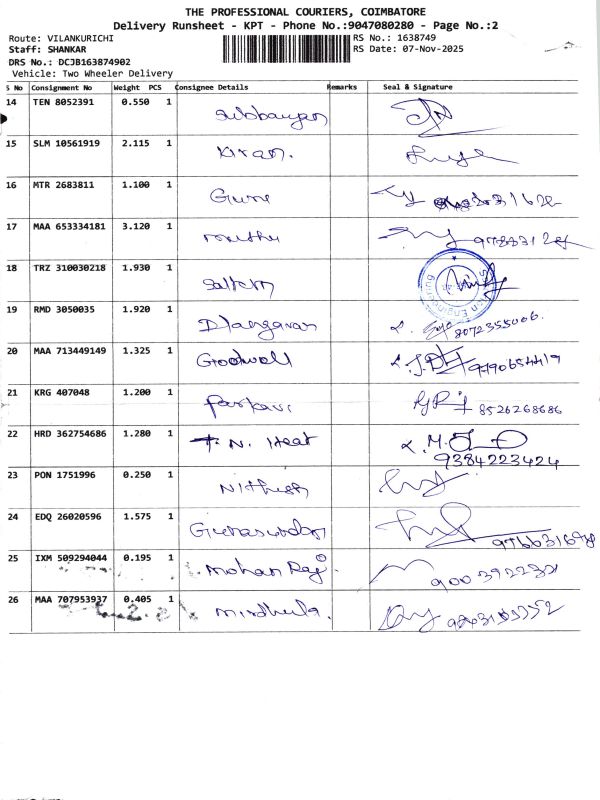 THE PROFESSIONAL COURIERS, COIMBATORE
Delivery Runsheet - KPT - Phone No.:9047080280 - Page No.:2
Route: VILANKURICHI RS No.: 1638749
Staff: SHANKAR RS Date: 07-Nov-2025
DRS No.: DCJB163874902
Vehicle: Two Wheeler Delivery
S No Consignment No Weight PCS Consignee Details Remarks Seal & Signature
14 TEN 8052391 0.550 1
15 SLM 10561919 2.115 1 Kiran.
16 MTR 2683811 1.100 1 Guru
17 MAA 653334181 3.120 1
18 TRZ 310030218 1.930 1
19 RMD 3050035 1.920 1 8072355006.
20 MAA 713449149 1.325 1 Goodwell
21 KRG 407048 1.200 1 Parkavi 8526268686
22 HRD 362754686 1.280 1 T. N. Heat
9384223424
23 PON 1751996 0.250 1 Nithish
24 EDQ 26020596 1.575 1
25 IXM 509294044 0.195 1 Mohan Raj.
26 MAA 707953937 0.405 1 Mirdhula.